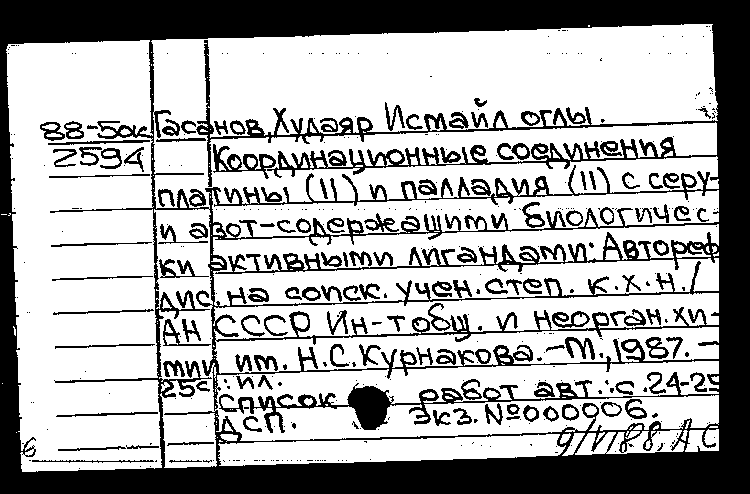 88-5ок Гасанов, Худаяр Исмайл оглы.
2594 Координационные соединения
платины (II) и палладия (II) с серу-
и азот-содержащими биологичес-
ки активными лигандами: Автореф
дис. на соиск. учен. степ. к.х.н./
АН СССР, Ин-т общ. и неорган. хи-
мии им. Н.С. Курнакова. -М., 1987. -
25с.: ил.
список работ авт.: с. 24-25
ДСП. Экз. №000006.
9/VI88, А,С
6